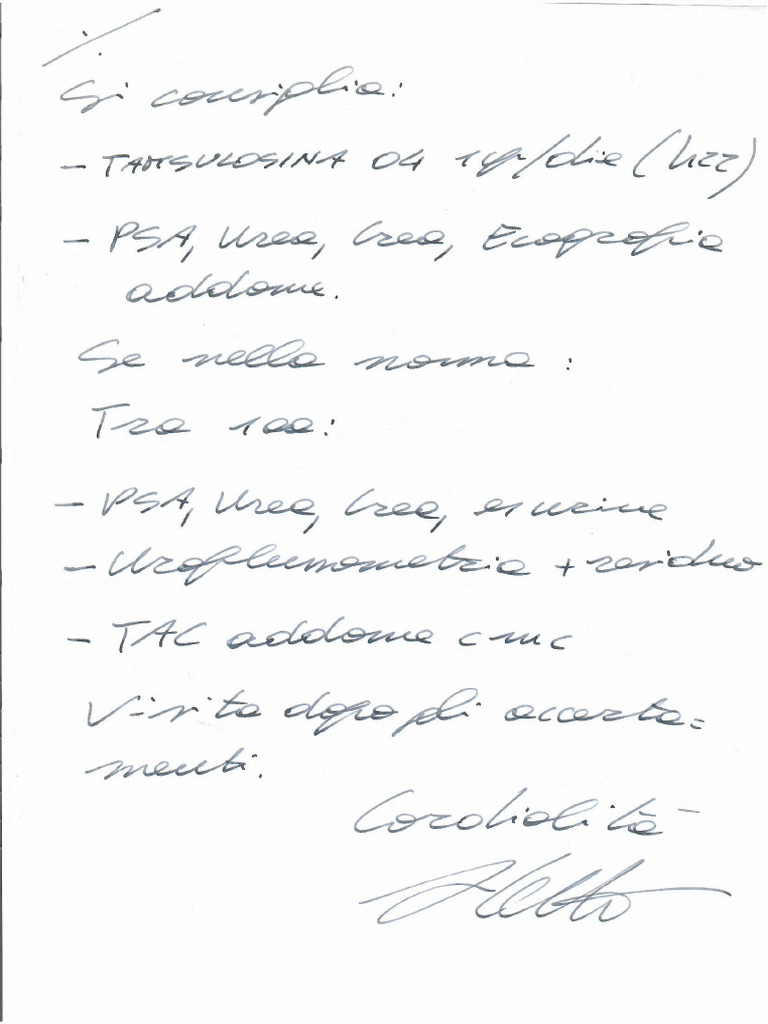 ./.
Si consiglia:
- TAMSULOSINA 04 1cp/die (h22)
- PSA, Urea, Crea, Ecografia
addome.
Se nella norma:
Tra 1aa:
- PSA, Urea, Crea, es urine
- Uroflussometria + residuo
- TAC addome c mc
Visita dopo gli accerta=
menti.
Cordialità